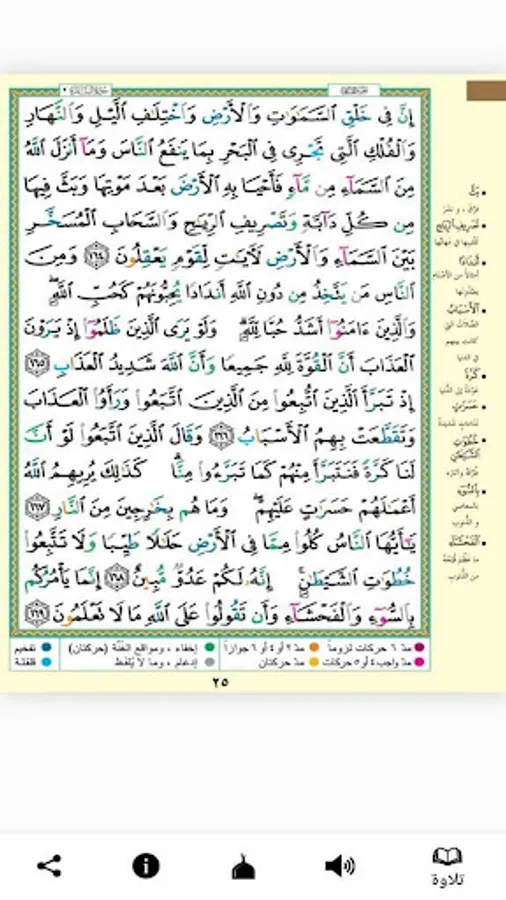 إِنَّ فِي خَلْقِ السَّمَاوَاتِ وَالْأَرْضِ وَاخْتِلَافِ اللَّيْلِ وَالنَّهَارِ
وَالْفُلْكِ الَّتِي تَجْرِي فِي الْبَحْرِ بِمَا يَنفَعُ النَّاسَ وَمَا أَنزَلَ اللَّهُ
مِنَ السَّمَاءِ مِن مَّاءٍ فَأَحْيَا بِهِ الْأَرْضَ بَعْدَ مَوْتِهَا وَبَثَّ فِيهَا
مِن كُلِّ دَابَّةٍ وَتَصْرِيفِ الرِّيَاحِ وَالسَّحَابِ الْمُسَخَّرِ
بَيْنَ السَّمَاءِ وَالْأَرْضِ لَآيَاتٍ لِّقَوْمٍ يَعْقِلُونَ ١٦٤ وَمِنَ
النَّاسِ مَن يَتَّخِذُ مِن دُونِ اللَّهِ أَندَادًا يُحِبُّونَهُمْ كَحُبِّ اللَّهِ ۖ
وَالَّذِينَ ءَامَنُوا أَشَدُّ حُبًّا لِّلَّهِ ۗ وَلَوْ يَرَى الَّذِينَ ظَلَمُوا إِذْ يَرَوْنَ
الْعَذَابَ أَنَّ الْقُوَّةَ لِلَّهِ جَمِيعًا وَأَنَّ اللَّهَ شَدِيدُ الْعَذَابِ ١٦٥
إِذْ تَبَرَّأَ الَّذِينَ اتُّبِعُوا مِنَ الَّذِينَ اتَّبَعُوا وَرَأَوُا الْعَذَابَ
وَتَقَطَّعَتْ بِهِمُ الْأَسْبَابُ ١٦٦ وَقَالَ الَّذِينَ اتَّبَعُوا لَوْ أَنَّ
لَنَا كَرَّةً فَنَتَبَرَّأَ مِنْهُمْ كَمَا تَبَرَّءُوا مِنَّا ۗ كَذَٰلِكَ يُرِيهِمُ اللَّهُ
أَعْمَالَهُمْ حَسَرَاتٍ عَلَيْهِمْ ۖ وَمَا هُم بِخَارِجِينَ مِنَ النَّارِ ١٦٧
يَا أَيُّهَا النَّاسُ كُلُوا مِمَّا فِي الْأَرْضِ حَلَالًا طَيِّبًا وَلَا تَتَّبِعُوا
خُطُوَاتِ الشَّيْطَانِ ۚ إِنَّهُ لَكُمْ عَدُوٌّ مُّبِينٌ ١٦٨ إِنَّمَا يَأْمُرُكُم
بِالسُّوءِ وَالْفَحْشَاءِ وَأَن تَقُولُوا عَلَى اللَّهِ مَا لَا تَعْلَمُونَ ١٦٩
بَثَّ
فرّق و نشر
تصريف الرياح
أندادًا
الأسباب
كرّة
حسرات
خطوات
الشيطان
بالسوء
الفحشاء
مدّ ٦ حركات لزوماً
مدّ ٢ أو ٤ أو ٦ جوازاً
إخفاء ، ومواقع الغُنَّة (حركتان)
تفخيم
مدّ واجب ٤ أو ٥ حركات
مدّ حركتان
إدغام ، وما لا يُلفَظ
قلقلة
٢٥
تلاوة